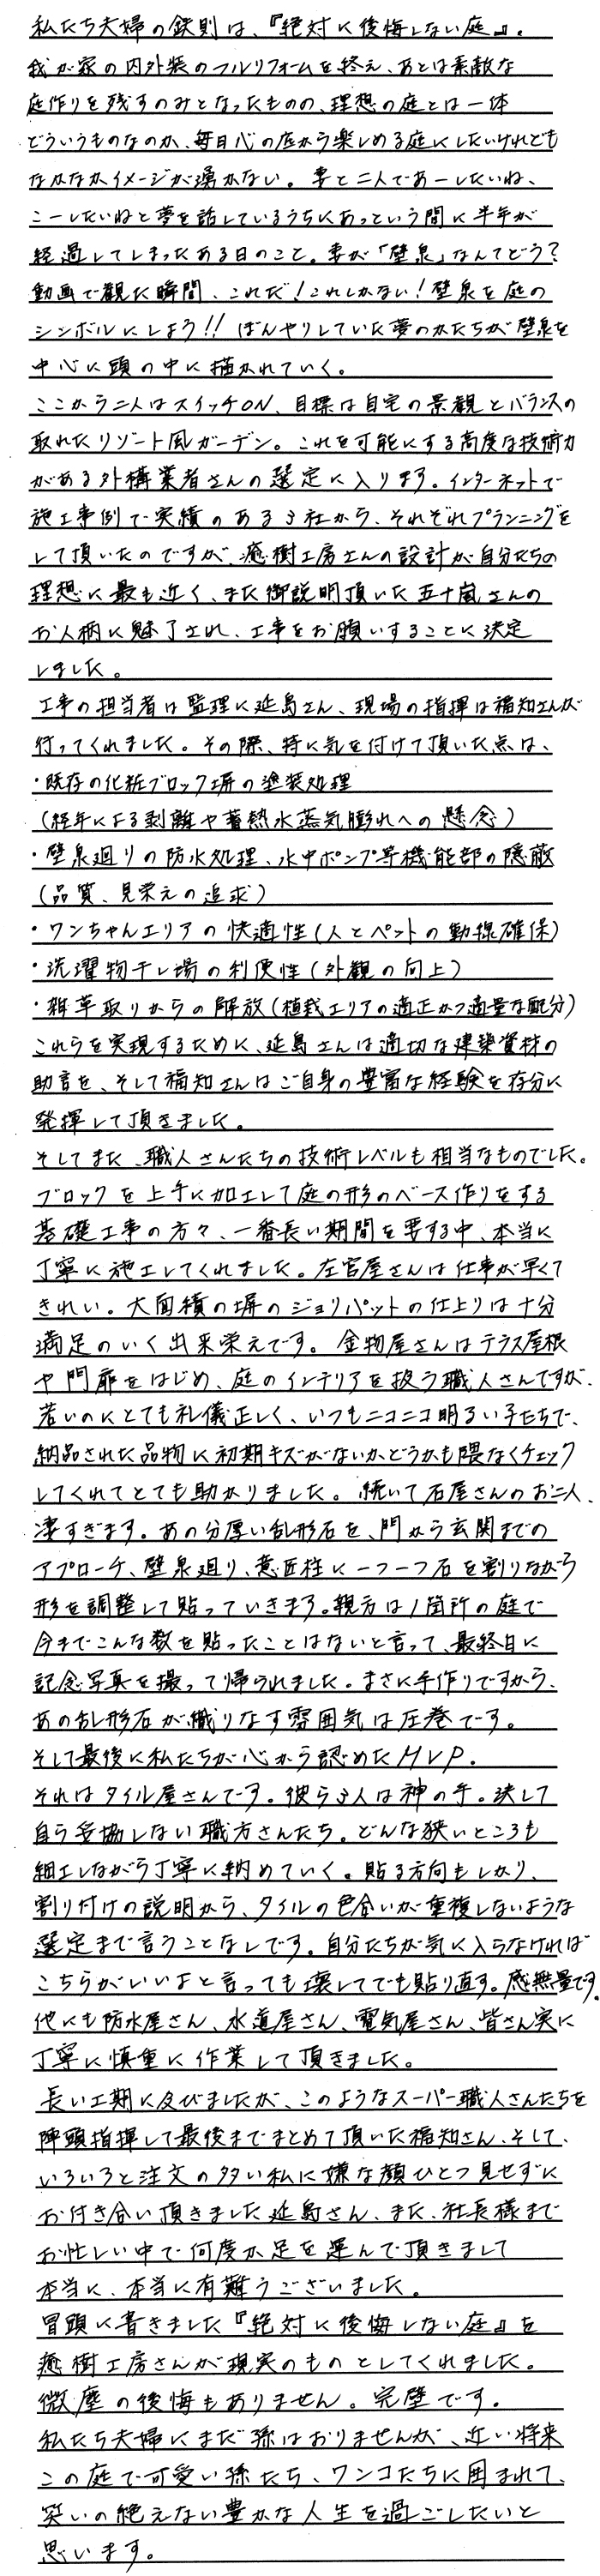 私たち夫婦の鉄則は、『絶対に後悔しない庭』。
我が家の内外装のフルリフォームを終え、あとは素敵な
庭作りを残すのみとなったものの、理想の庭とは一体
どういうものなのか、毎日心の底から楽しめる庭にしたいけれども
なかなかイメージが湧かない。妻と二人であーしたいね、
こーしたいねと夢を話しているうちにあっという間に半年が
経過してしまったある日のこと。妻が「壁泉」なんてどう?
動画で観た瞬間、これだ!これしかない!壁泉を庭の
シンボルにしよう!!ぼんやりしていた夢のかたちが壁泉を
中心に頭の中に描かれていく。
ここから二人はスイッチON、目標は自宅の景観とバランスの
取れたリゾート風ガーデン。これを可能にする高度な技術力
がある外構業者さんの選定に入ります。インターネットで
施工事例で実績のある3社から、それぞれプランニングを
して頂いたのですが、癒樹工房さんの設計が自分たちの
理想に最も近く、また御説明頂いた五十嵐さんの
お人柄に魅了され、工事をお願いすることに決定
しました。
工事の担当者は監理に延島さん、現場の指揮は福知さんが
行ってくれました。その際、特に気を付けて頂いた点は、
・既存の化粧ブロック塀の塗装処理
(経年による剥離や蓄熱水蒸気膨れへの懸念)
・壁泉廻りの防水処理、水中ポンプ等機能部の隠蔽
(品質、見栄えの追求)
・ワンちゃんエリアの快適性(人とペットの動線確保)
・洗濯物干し場の利便性(外観の向上)
・雑草取りからの解放(植栽エリアの適正かつ適量な配分)
これらを実現するために、延島さんは適切な建築資材の
助言を、そして福知さんはご自身の豊富な経験を存分に
発揮して頂きました。
そしてまた、職人さんたちの技術レベルも相当なものでした。
ブロックを上手に加工して庭の形のベース作りをする
基礎工事の方々、一番長い期間を要する中、本当に
丁寧に施工してくれました。左官屋さんは仕事が早くて
きれい。大面積の塀のジョリパットの仕上りは十分
満足のいく出来栄えです。金物屋さんはテラス屋根
や門扉をはじめ、庭のインテリアを扱う職人さんですが、
若いのにとても礼儀正しく、いつもニコニコ明るい子たちで、
納品された品物に初期キズがないかどうかも隈なくチェック
してくれてとても助かりました。続いて石屋さんのお二人、
凄すぎます。あの分厚い乱形石を、門から玄関までの
アプローチ、壁泉廻り、意匠柱に一つ一つ石を割りながら
形を調整して貼っていきます。親方は1箇所の庭で
今までこんな数を貼ったことはないと言って、最終日に
記念写真を撮って帰られました。まさに手作りですから、
あの乱形石が織りなす雰囲気は圧巻です。
そして最後に私たちが心から認めたMVP。
それはタイル屋さんです。彼ら3人は神の手。決して
自ら妥協しない職方さんたち。どんな狭いところも
細工しながら丁寧に納めていく。貼る方向もしかり、
割り付けの説明から、タイルの色合いが重複しないような
選定まで言うことなしです。自分たちが気に入らなければ
こちらがいいよと言っても壊してでも貼り直す。感無量です。
他にも防水屋さん、水道屋さん、電気屋さん、皆さん実に
丁寧に慎重に作業して頂きました。
長い工期に及びましたが、このようなスーパー職人さんたちを
陣頭指揮して最後までまとめて頂いた福知さん、そして、
いろいろと注文の多い私に嫌な顔ひとつ見せずに
お付き合い頂きました延島さん、また、社長様まで
お忙しい中で何度か足を運んで頂きまして
本当に、本当に有難うございました。
冒頭に書きました『絶対に後悔しない庭』を
癒樹工房さんが現実のものとしてくれました。
微塵の後悔もありません。完璧です。
私たち夫婦にまだ孫はおりませんが、近い将来
この庭で可愛い孫たち、ワンコたちに囲まれて、
笑いの絶えない豊かな人生を過ごしたいと
思います。